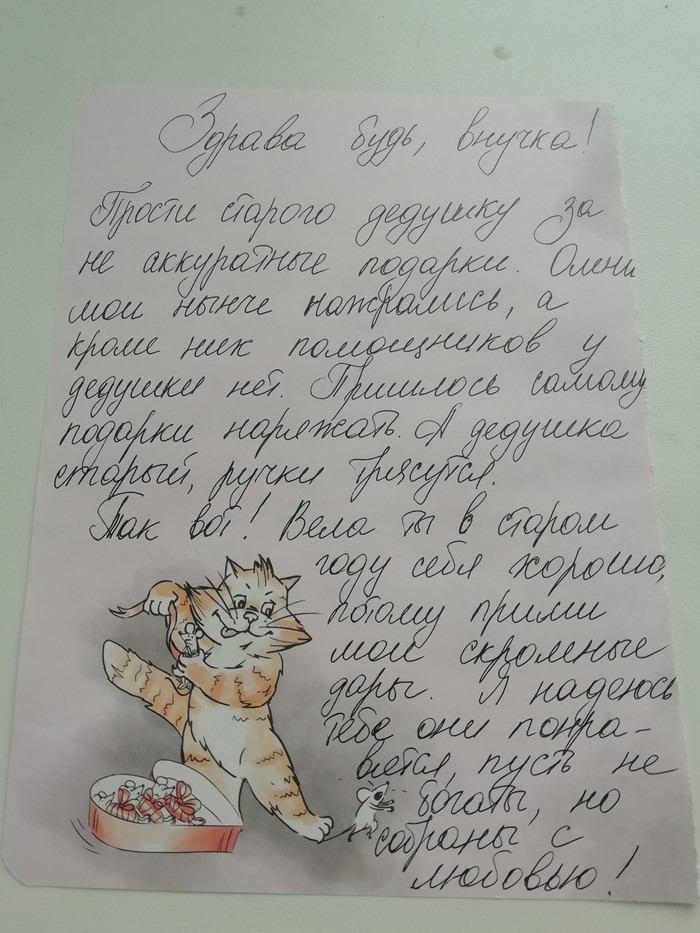 Здрава будь, внучка!
Прости старого дедушку за
не аккуратные подарки. Олени
мои нынче нажрались, а
кроме них помощников у
дедушки нет. Пришлось самому
подарки наряжать. А дедушка
старый, ручки трясутся.
Так вот! Вела ты в старом
году себя хорошо,
потому прими
мои скромные
дары. Я надеюсь
тебе они понра-
вятся, пусть не
богаты, но
собраны с
любовью!